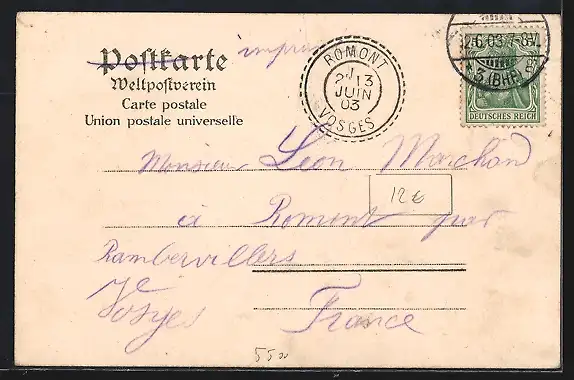 Postkarte
imprimé
Weltpostverein
Carte postale
Union postale universelle
ROMONT
13
JUIN
03
VOSGES
3.(BHF)
DEUTSCHES REICH
Monsieur Leon Marchand
12€
à Romont par
Rambervillers
Vosges
France